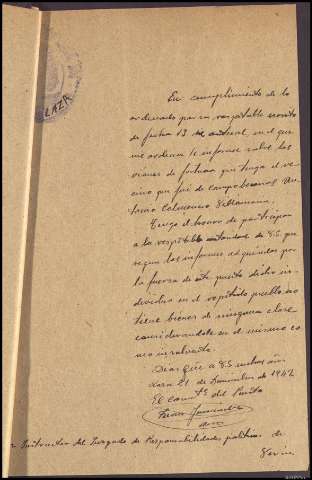 LAZA
En cumplimiento de lo
ordenado por su respetable escrito
de fecha 13 del actual, en el que
me ordena le informe sobre los
bienes de fortuna que tenga el ve-
cino que fué de Campobecerros An-
tonio
Tengo el honor de participar
a la respetable autoridad de V.S. que
segun los informes adquiridos por
la fuerza de este puesto dicho in-
dividuo en el repetido pueblo no
tiene bienes de ninguna clase
considerandole en el mismo co-
mo insolvente.
Dios gue a V.S. muchos años
Laza 21 de de 1942
El Comte del Puesto
Instructor del Juzgado de Responsabilidades politicas de
Verin